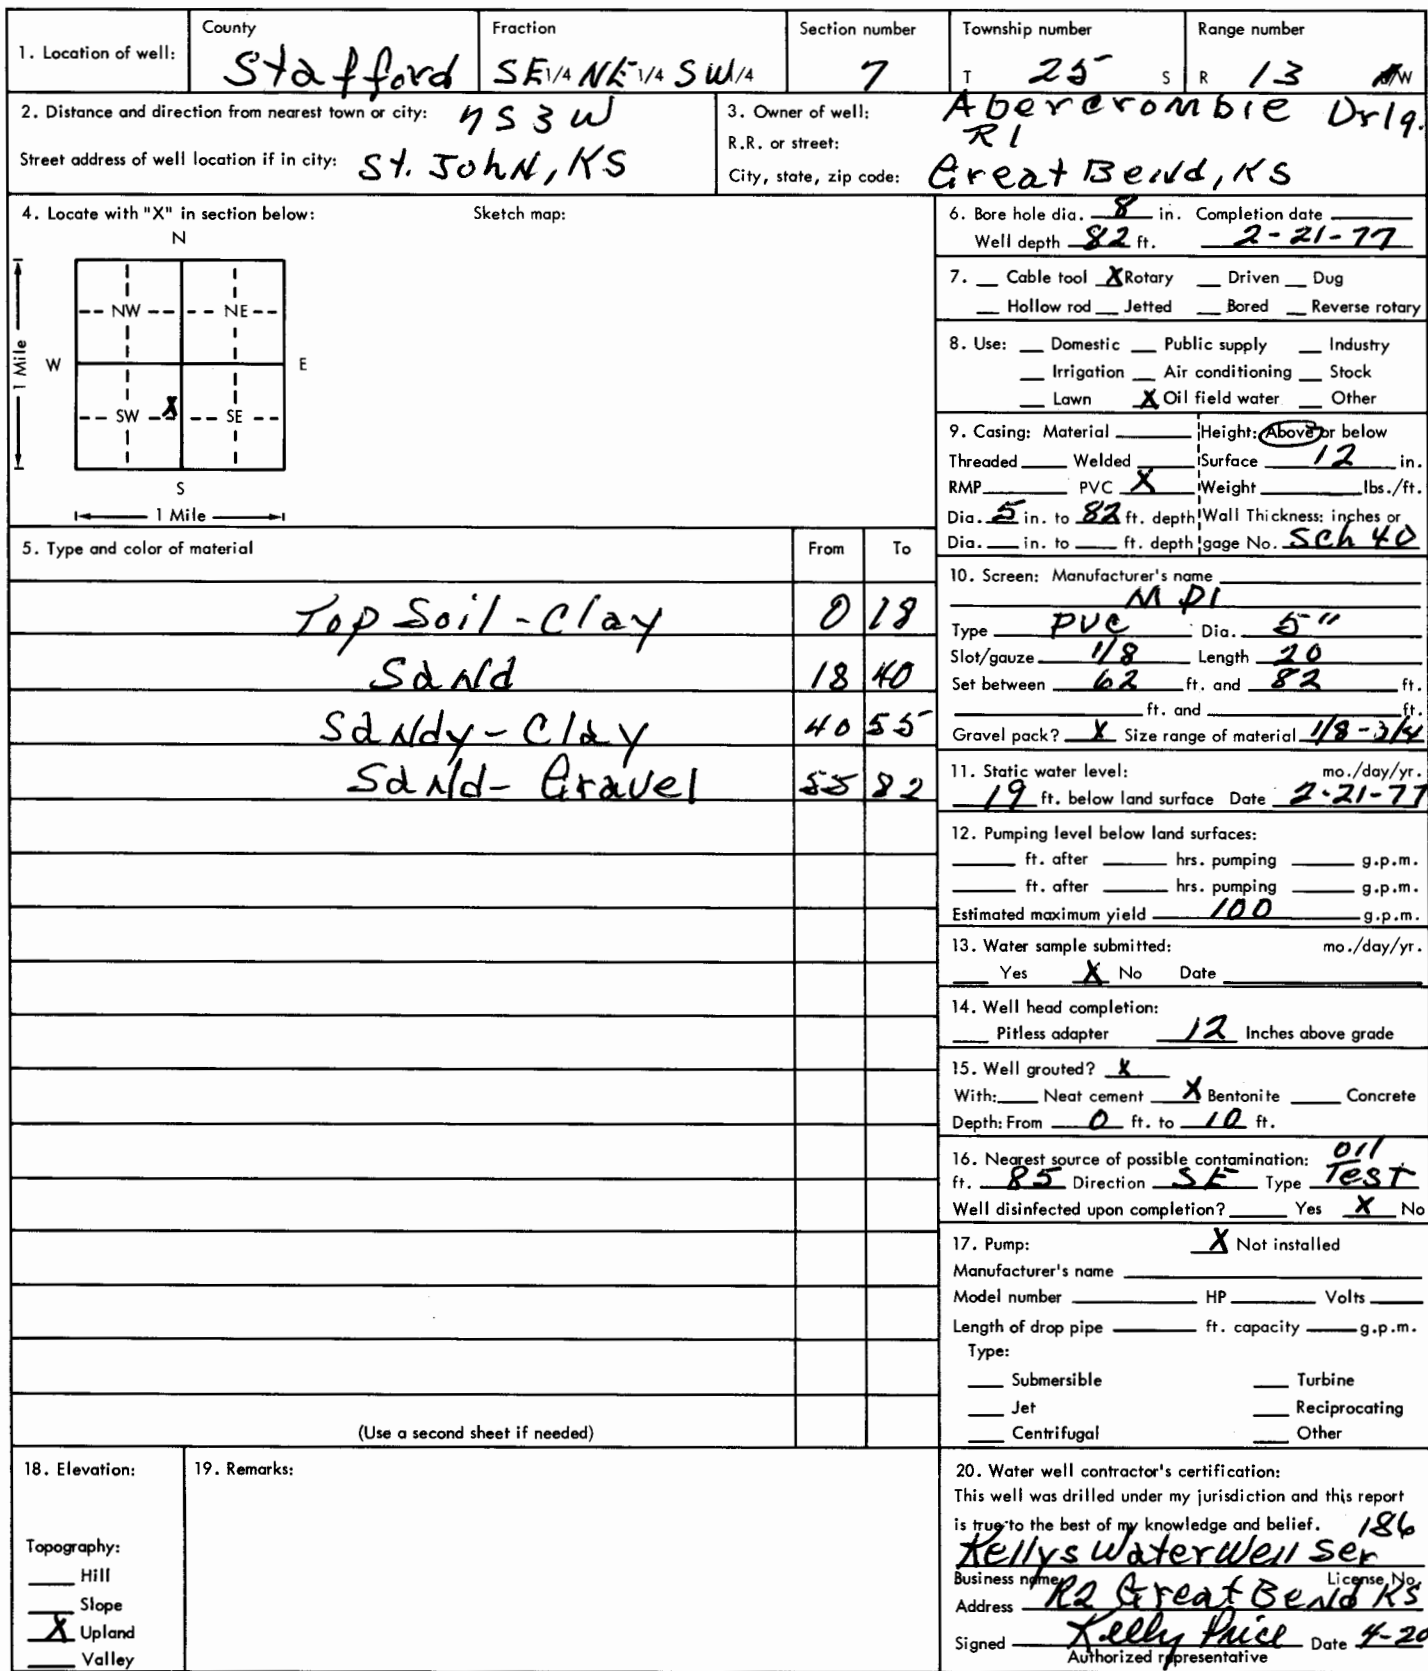 1. Location of well:
County
Stafford
Fraction
SE 1/4 NE 1/4 SW 1/4
Section number
7
Township number
T 25 S
Range number
R 13 W
2. Distance and direction from nearest town or city: 7S 3W
Street address of well location if in city: St. John, KS
3. Owner of well: Abercrombie Drlg.
R.R. or street: R1
City, state, zip code: Great Bend, KS
4. Locate with "X" in section below:
Sketch map:
N
NW NE
W E
1 Mile
SW X SE
S
1 Mile
5. Type and color of material From To
Top Soil - Clay 0 18
Sand 18 40
Sandy - Clay 40 55
Sand - Gravel 55 82
(Use a second sheet if needed)
6. Bore hole dia. 8 in. Completion date
Well depth 82 ft. 2-21-77
7. Cable tool X Rotary Driven Dug
Hollow rod Jetted Bored Reverse rotary
8. Use: Domestic Public supply Industry
Irrigation Air conditioning Stock
Lawn X Oil field water Other
9. Casing: Material Height: Above or below
Threaded Welded Surface 12 in.
RMP PVC X Weight lbs./ft.
Dia. 5 in. to 82 ft. depth Wall Thickness: inches or
Dia. in. to ft. depth gage No. Sch 40
10. Screen: Manufacturer's name
M PI
Type PVC Dia. 5"
Slot/gauze 1/8 Length 20
Set between 62 ft. and 82 ft.
ft. and ft.
Gravel pack? X Size range of material 1/8 - 3/4
11. Static water level: mo./day/yr.
19 ft. below land surface Date 2-21-77
12. Pumping level below land surfaces:
ft. after hrs. pumping g.p.m.
ft. after hrs. pumping g.p.m.
Estimated maximum yield 100 g.p.m.
13. Water sample submitted: mo./day/yr.
Yes X No Date
14. Well head completion:
Pitless adapter 12 Inches above grade
15. Well grouted? X
With: Neat cement X Bentonite Concrete
Depth: From 0 ft. to 10 ft.
16. Nearest source of possible contamination: Oil
ft. 85 Direction SE Type Test
Well disinfected upon completion? Yes X No
17. Pump: X Not installed
Manufacturer's name
Model number HP Volts
Length of drop pipe ft. capacity g.p.m.
Type:
Submersible Turbine
Jet Reciprocating
Centrifugal Other
18. Elevation:
Topography:
Hill
Slope
X Upland
Valley
19. Remarks:
20. Water well contractor's certification:
This well was drilled under my jurisdiction and this report
is true to the best of my knowledge and belief. 186
Kellys Water Well Ser
Business name License No.
Address R2 Great Bend KS
Signed Kelly Price Date 4-20
Authorized representative